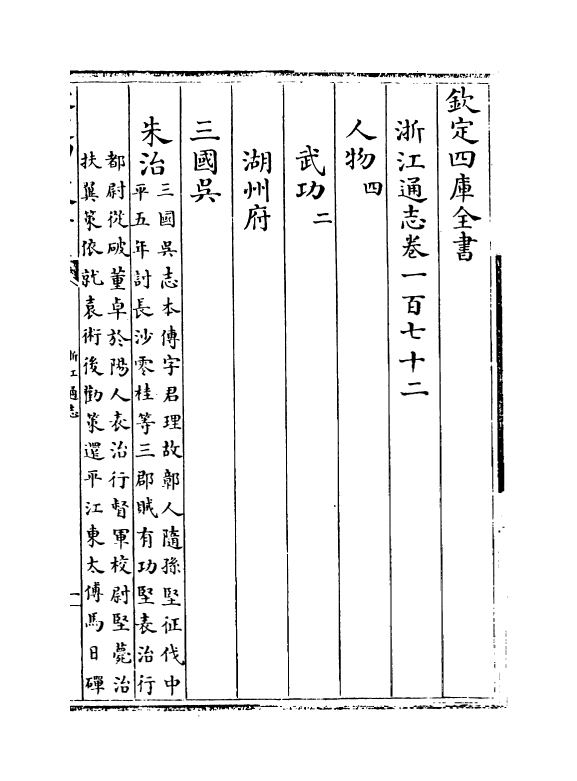 欽定四庫全書
浙江通志卷一百七十二
人物四
武功二
湖州府
三國吳
朱治三國吳志本傳字君理故鄣人隨孫堅征伐中
平五年討長沙零桂等三郡賊有功堅表治行
都尉從破董卓於陽人表治行督軍校尉堅薨治
扶翼策依就袁術後勸策還平江東太傅馬日磾
浙江通志